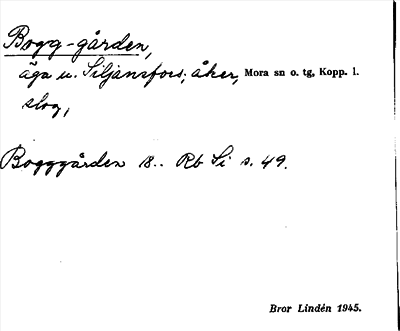 Bogg-gården,
äga u. Siljansfors; åker, Mora sn o. tg, Kopp. l.
slog,
Bogggården 18.. Rb Si s. 49.
Bror Lindén 1945.